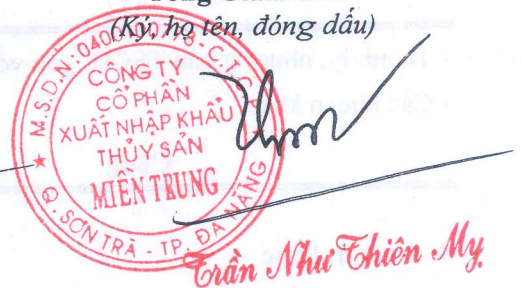 (Ký, họ tên, đóng dấu)
M.S.D.N: 0400
CÔNG TY
CỔ PHẦN
XUẤT NHẬP KHẨU
THỦY SẢN
MIỀN TRUNG
Q. SƠN TRÀ - TP. ĐÀ NẴNG
Trần Như Thiên My